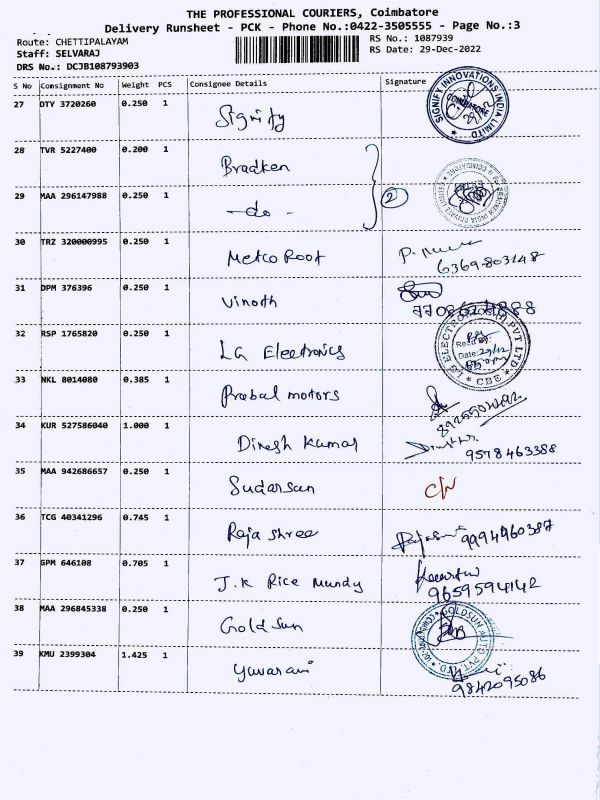 THE PROFESSIONAL COURIERS, Coimbatore
Delivery Runsheet - PCK - Phone No.:0422-3505555 - Page No.:3
Route: CHETTIPALAYAM RS No.: 1087939
Staff: SELVARAJ RS Date: 29-Dec-2022
DRS No.: DCJB108793903
S No Consignment No Weight PCS Consignee Details Signature
27 DTY 3720260 0.250 1 Signify
SIGNIFY INNOVATIONS INDIA LIMITED
COIMBATORE
28 TVR 5227400 0.200 1 Bradken
29 MAA 296147988 0.250 1 -do- 2
30 TRZ 320000995 0.250 1 Metco Roof
6369803148
31 DPM 376396 0.250 1 Vinoth
32 RSP 1765820 0.250 1 LG Electronics
LG ELECTRONICS PVT LTD
Date: 29/12
CBE
33 NKL 8014080 0.385 1 Probal motors
34 KUR 527586040 1.000 1 Dinesh Kumar
9578463388
35 MAA 942686657 0.250 1 Sudarsan
36 TCG 40341296 0.745 1 Raja shree
9994960387
37 GPM 646108 0.705 1 J.K Rice Mundy
9659594142
38 MAA 296845338 0.250 1 Gold Sun
GOLDSUN AUTO PVT LTD
39 KMU 2399304 1.425 1 Yuvarani
9842095086